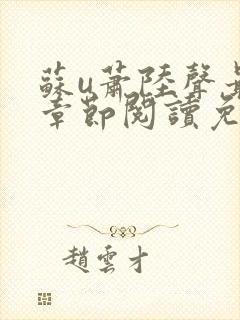 蘇u蕭陸聲
章節閱讀免
趙雲才